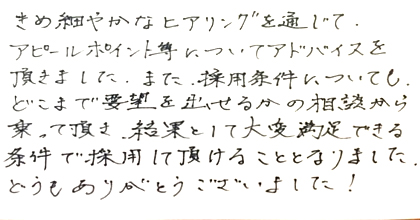 きめ細やかなヒアリングを通じて、
アピールポイント等についてアドバイスを
頂きました。また、採用条件についても、
どこまで要望を出せるかの相談から
乗って頂き、結果として大変満足できる
条件で採用して頂けることとなりました。
どうもありがとうございました！